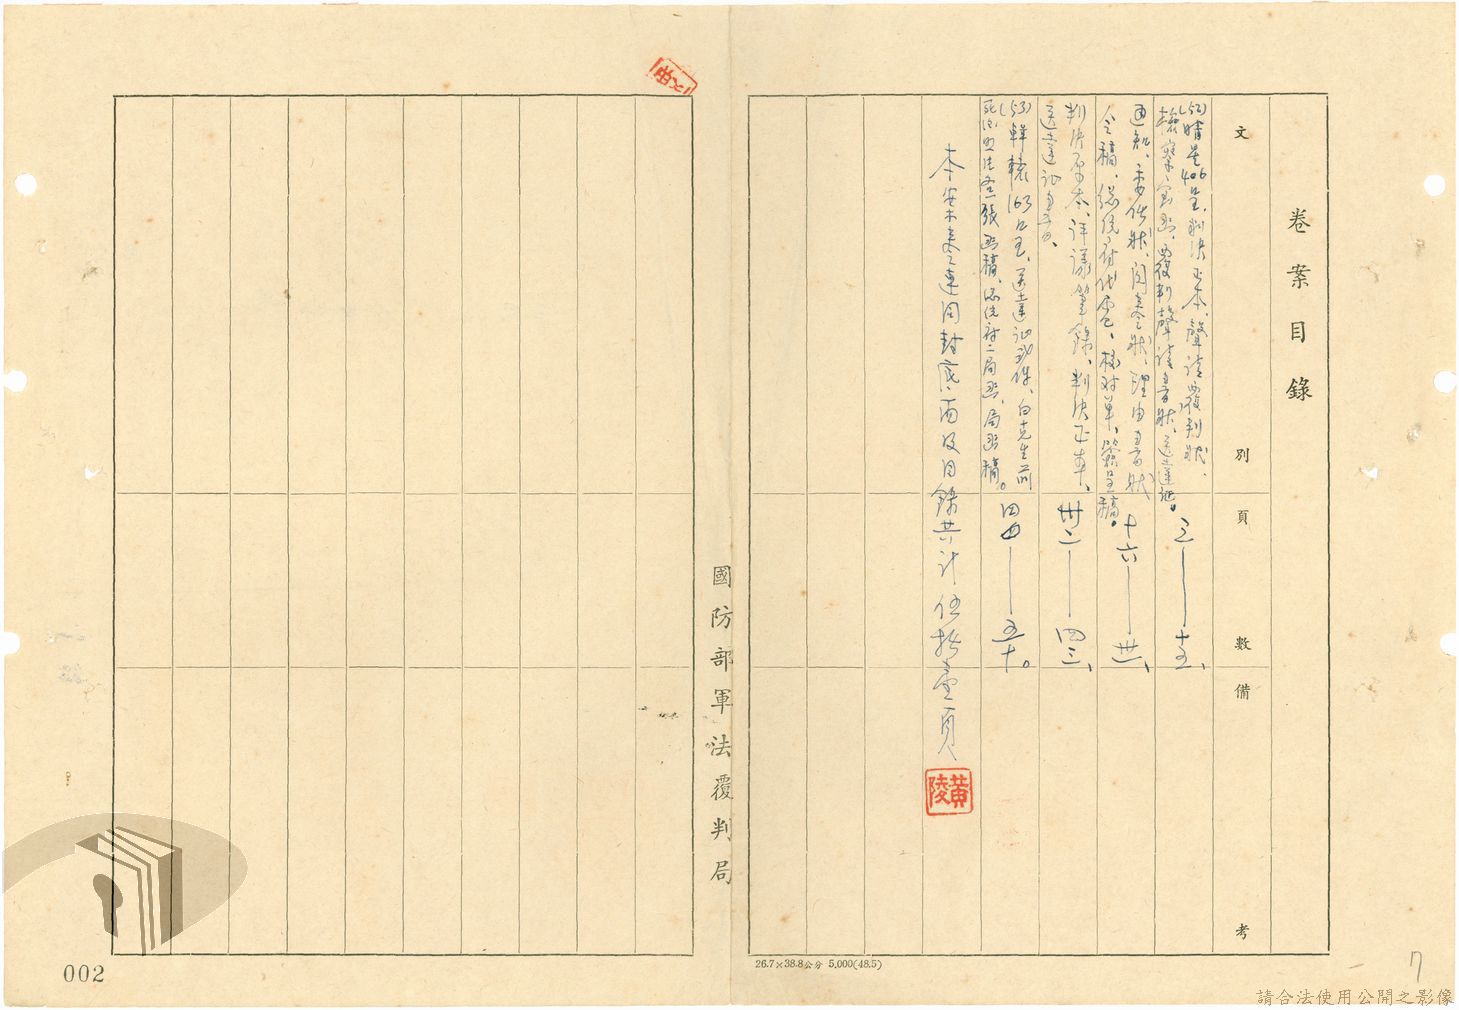 卷案目錄
文別
頁數
備考
(52)晴星406呈、判決正本、聲請覆判狀、
檢察官函、覆判聲請書狀、送達證。
三—十五、
通知、委任狀、閱卷狀、理由書狀
令稿、總統府代電、核對單、簽呈稿。
十六—卅一、
判決原本、評議筆錄、判決正本、
送達証書、
卅二—四三、
(53)輯轅163呈、送達証貳件、白克生前
死後照片各一張函稿、總統府二局函、局函稿。
四四—五十。
本案卷連同封底面及目錄共計伍拾壹頁
黃陵
國防部軍法覆判局
26.7×38.8公分 5,000(48.5)
002
7
請合法使用公開之影像